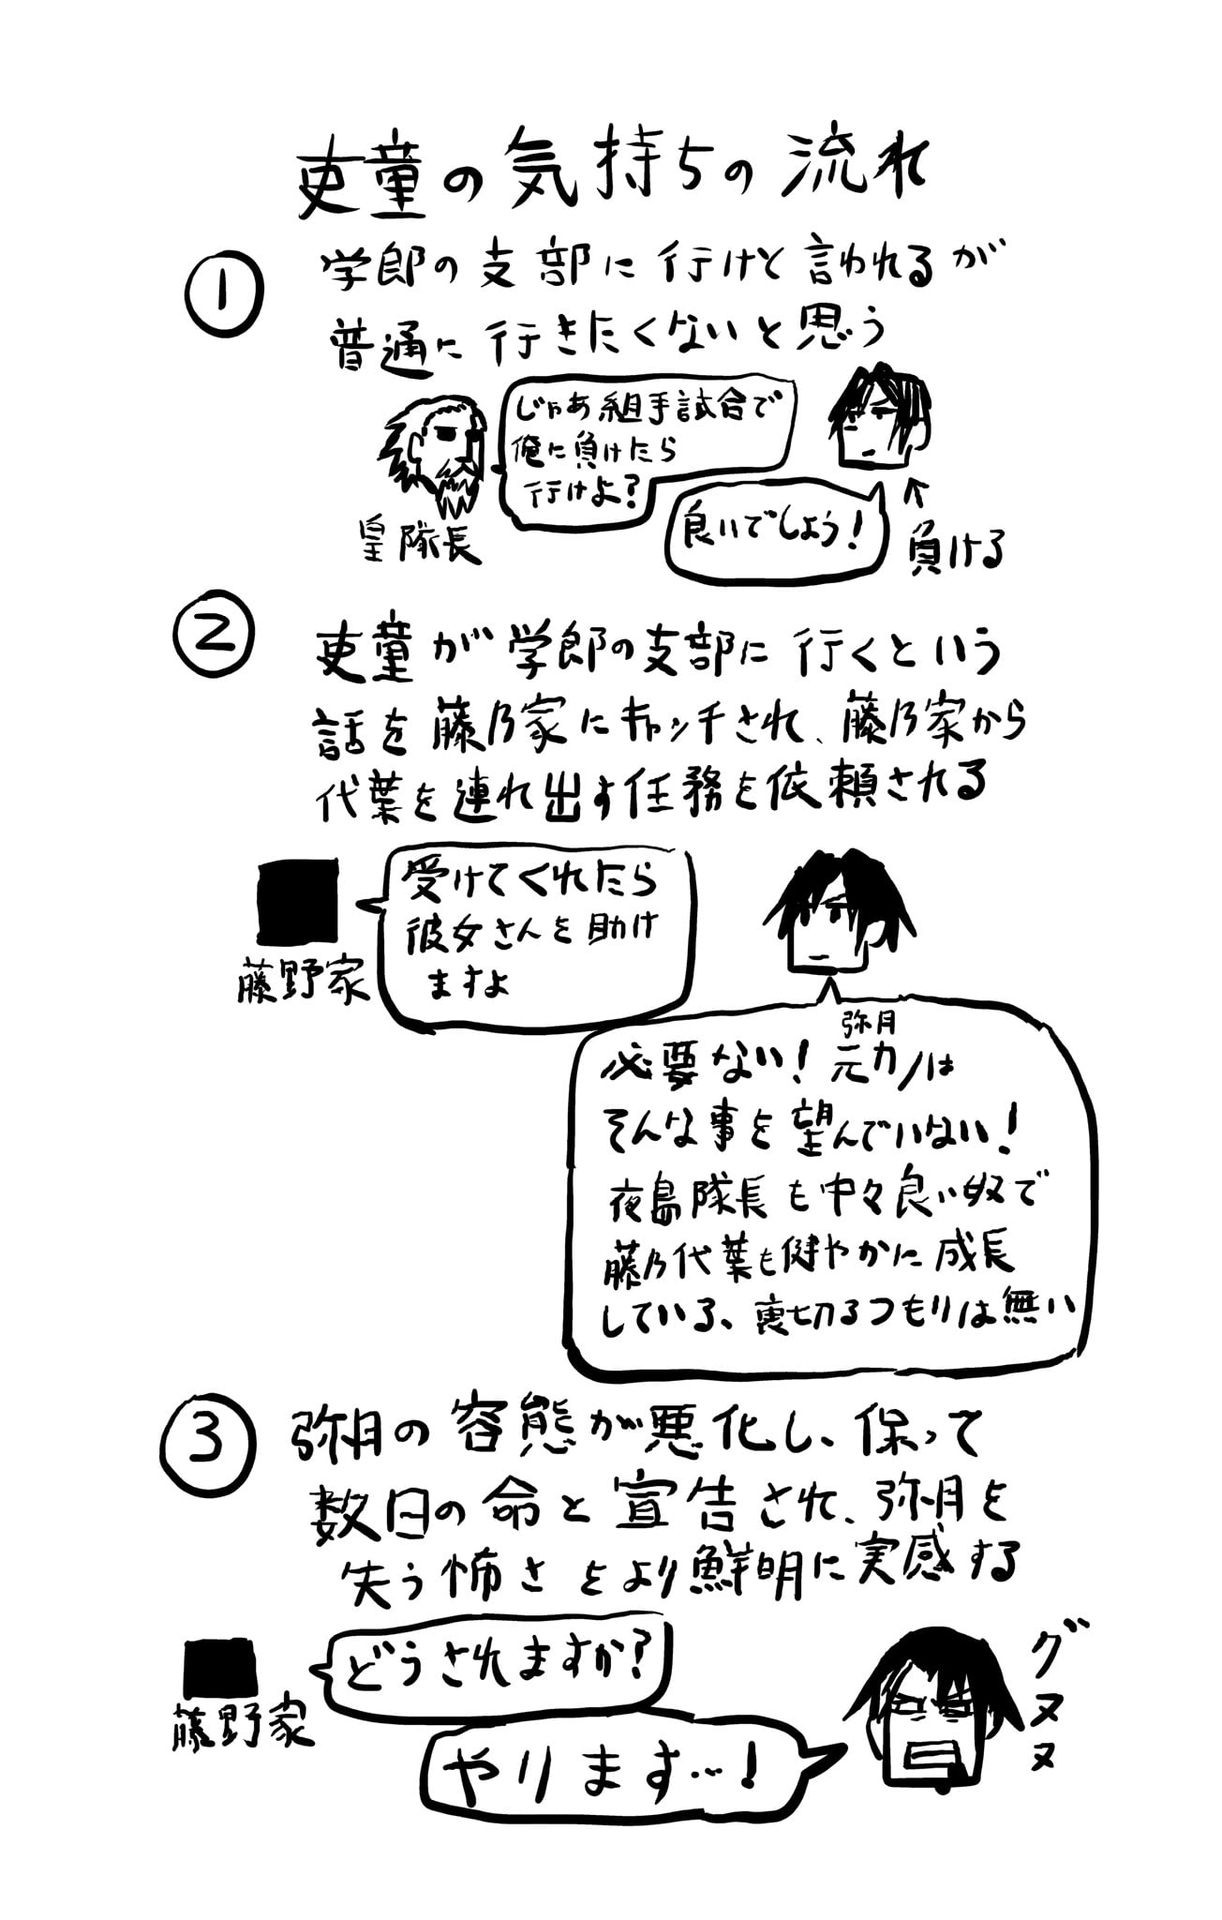 吏童の気持ちの流れ
①
学郎の支部に行けと言われるが
普通に行きたくないと思う
じゃあ組手試合で
俺に負けたら
行けよ?
皇隊長
良いでしょう!
↑
負ける
②
吏童が学郎の支部に行くという
話を藤乃家にキャッチされ、藤乃家から
代葉を連れ出す任務を依頼される
受けてくれたら
彼女さんを助け
ますよ
藤野家
弥月
必要ない!元カノは
そんな事を望んでいない!
夜島隊長も中々良い奴で
藤乃代葉も健やかに成長
している、裏切るつもりは無い
③
弥月の容態が悪化し、保って
数日の命と宣告され、弥月を
失う怖さをより鮮明に実感する
どうされますか?
藤野家
やります…!
グヌヌ